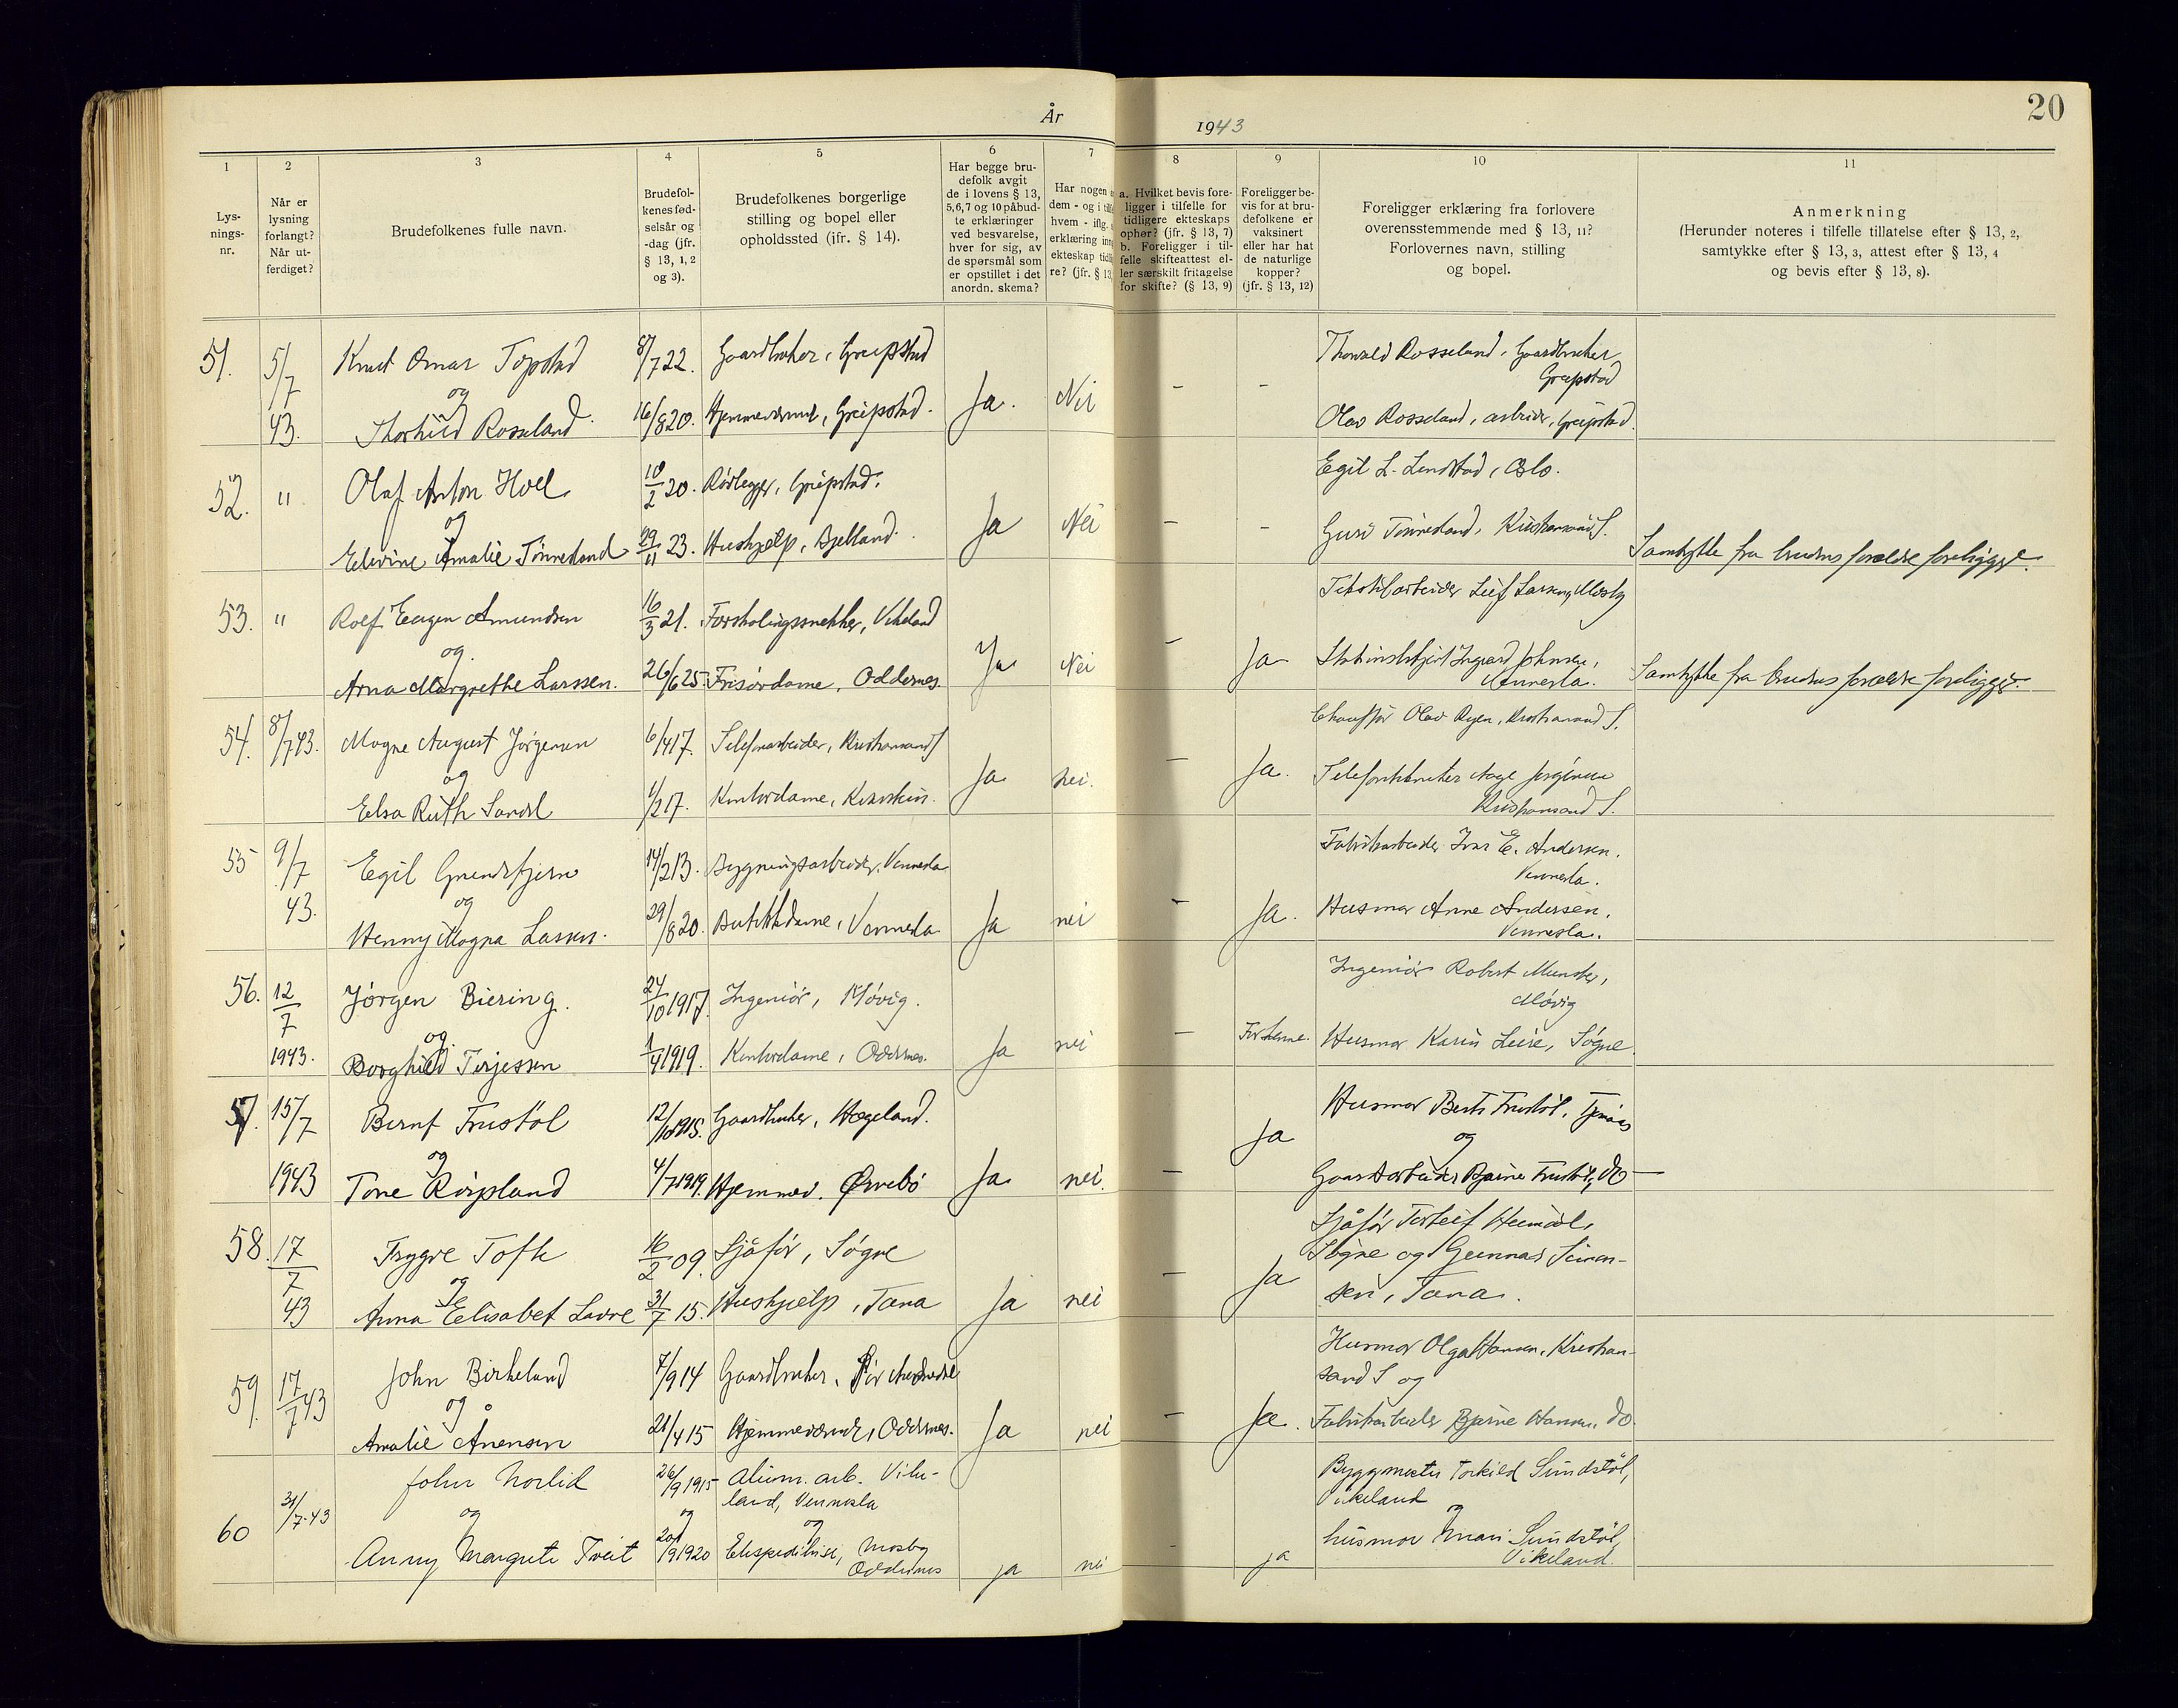 År 1943
20
1 2 3 4 5 6 7 8 9 10 11
Lys-
nings-
nr.
Når er
lysning
forlangt?
Når ut-
ferdiget?
Brudefolkenes fulle navn.
Brudefol-
kenes fød-
selsår og
-dag (jfr.
§ 13, 1, 2
og 3).
Brudefolkenes borgerlige
stilling og bopel eller
opholdssted (jfr. § 14).
Har begge bru-
defolk avgit
de i lovens § 13,
5,6,7 og 10 påbud-
te erklæringer
ved besvarelse,
hver for sig, av
de spørsmål som
er opstillet i det
anordn. skema?
Har nogen
dem - og i
hvem - iflg.
erklæring
ekteskap
re? (jfr. § 13,
a. Hvilket bevis fore-
ligger i tilfelle for
tidligere ekteskaps
ophør? (jfr. § 13, 7)
b. Foreligger i til-
felle skifteattest el-
ler særskilt fritagelse
for skifte? (§ 13, 9)
Foreligger be-
vis for at bru-
defolkene er
vaksinert
eller har hat
de naturlige
kopper?
(jfr. § 13, 12)
Foreligger erklæring fra forlovere
overensstemmende med § 13, 11?
Forlovernes navn, stilling
og bopel.
Anmerkning
(Herunder noteres i tilfelle tillatelse efter § 13, 2,
samtykke efter § 13, 3, attest efter § 13, 4
og bevis efter § 13, 8).
51. 5/7 43. Knut Omar Topstad 8/7 22. Gaardbruker, Greipstad Thorvald Rosseland, Gaardbruker
Greipstad
og
Thorhild Rosseland 16/8 20. Hjemmeværende, Greipstad. Ja. Nei - - Olav Rosseland, arbeider, Greipstad.
52. " Olaf Anton Hoel 10/2 20. Rørlegger, Greipstad. Egil L. Lindstad, Oslo.
og
Elevine Amalie Tønnesland 29/11 23. Hushjelp, Bjelland. Ja Nei - - Guri Tønnesland, Kristiansand S. Samtykke fra brudens forældre foreligger.
53. " Rolf Eugen Amundsen 16/3 21. Forskalingssnekker, Vikeland Tekstilarbeider Leif Larsen, Mosby
og
Arna Margrethe Larssen. 26/6 25. Frisørdame, Oddernes. Ja Nei - Ja Ingvard Johnsen,
Vennesla. Samtykke fra brudens forældre foreligger.
54. 8/7 43. Magne August Jørgensen 6/4 17. Telefonarbeider, Kristiansand S Chauffør Olav Ryen, Kristiansand S.
og
Elsa Ruth Sandl 1/2 17. Kontordame, Ja nei. - Ja. Aage Jørgensen
Kristiansand S.
55 9/7 43. Egil Grundetjern 14/2 13. Bygningsarbeider, Vennesla Fabrikarbeider Ivar E. Andersen.
Vennesla.
og
Henny Magna Larsen. 29/8 20. Butikkdame, Vennesla Ja nei - Ja. Husmor Anne Andersen,
Vennesla.
56. 12/7 1943. Jørgen Biering. 24/10 1917. Ingeniør, Møvig. Ingeniør Robert Munster,
Møvig
og
Borghild Terjessen 1/4 1919. Kontordame, Oddernes. Ja nei - For henne. Husmor Karin Leire, Søgne.
57. 15/7 1943 Bernt Trustøl 12/10 1915. Gaardbruker, Hægeland. Ja Husmor Berta Trustøl,
og og
Tone Røisland 4/7 1919. Hjemmev. Øvrebø Ja nei. - Gaardarbeider Bjarne Trustøl, do —
58. 17/7 43 Trygve Tofte 16/2 09. Sjåfør, Søgne Sjåfør Torleif
Søgne og Gunnar Simen-
og
Anna Elisabet Lavre 31/7 15. Hushjælp, Tana Ja nei - Ja sen, Tana.
59. 17/7 43 John Birkeland 7/9 14 Gaardbruker, Husmor Olga Hansen, Kristian-
sand S og
og
Amalie Ånensen 21/4 15 Hjemmeværende, Oddernes. Ja nei - Ja. Fabrikarbeider Bjarne Hansen, do.
60 31/7-43 John Norlid 26/9 1915 Alum. arb. Vike-
land, Vennesla Byggmester Torkild Sundstøl,
Vikeland
og og og og
Anny Margrete Tveit 20/9 1920 Ekspeditrise, Mosby
Oddernes ja nei - ja husmor Mari Sundstøl,
Vikeland.